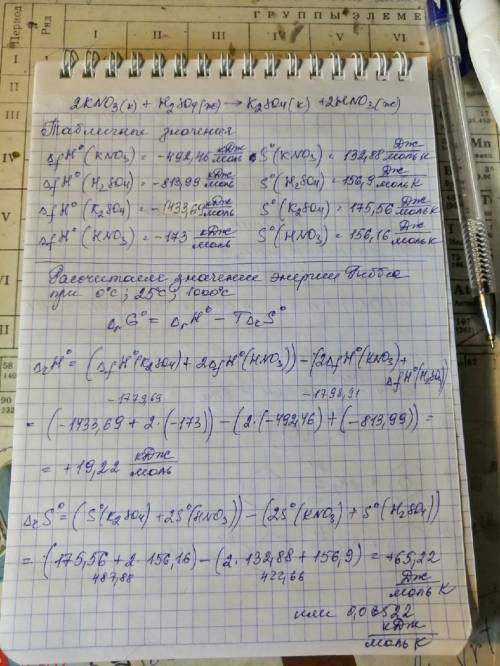 Период
Ряд
ГРУППЫ ЭЛЕМЕ
I II III IV V VI
2KNO3(к) + H2SO4(ж) → K2SO4(к) + 2HNO3(ж)
Табличные значения
ΔfH°(KNO3) = -492,46 кДж/моль S°(KNO3) = 132,88 Дж/моль К
ΔfH°(H2SO4) = -813,99 кДж/моль S°(H2SO4) = 156,9 Дж/моль К
ΔfH°(K2SO4) = -1433,69 кДж/моль S°(K2SO4) = 175,56 Дж/моль К
ΔfH°(HNO3) = -173 кДж/моль S°(HNO3) = 156,16 Дж/моль К
Рассчитаем значение энергии Гиббса
при 0°C; 25°C; 1000°C
ΔrG° = ΔrH° - TΔrS°
ΔrH° = (ΔfH°(K2SO4) + 2ΔfH°(HNO3)) - (2ΔfH°(KNO3) + ΔfH°(H2SO4))
-1779,69 -1798,91
= (-1433,69 + 2·(-173)) - (2·(-492,46) + (-813,99)) =
= +19,22 кДж/моль
ΔrS° = (S°(K2SO4) + 2S°(HNO3)) - (2S°(KNO3) + S°(H2SO4))
= (175,56 + 2·156,16) - (2·132,88 + 156,9) = +65,22 Дж/моль К
487,88 422,66
или 0,06522 кДж/моль К